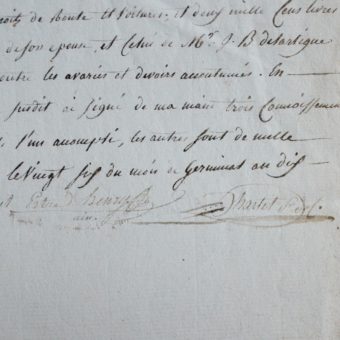 droits de Route et Voitures, et deux mille Cens livres
de son epouse, et Celui de Mr. J. B. Delartigue
contre les avariés et devoirs accoutumés. En
susdit ai Signé de ma main trois Connoissement
l'un accompli, les autres sont de nulle
le Vingt Six du mois de Germinal an dix
ainé